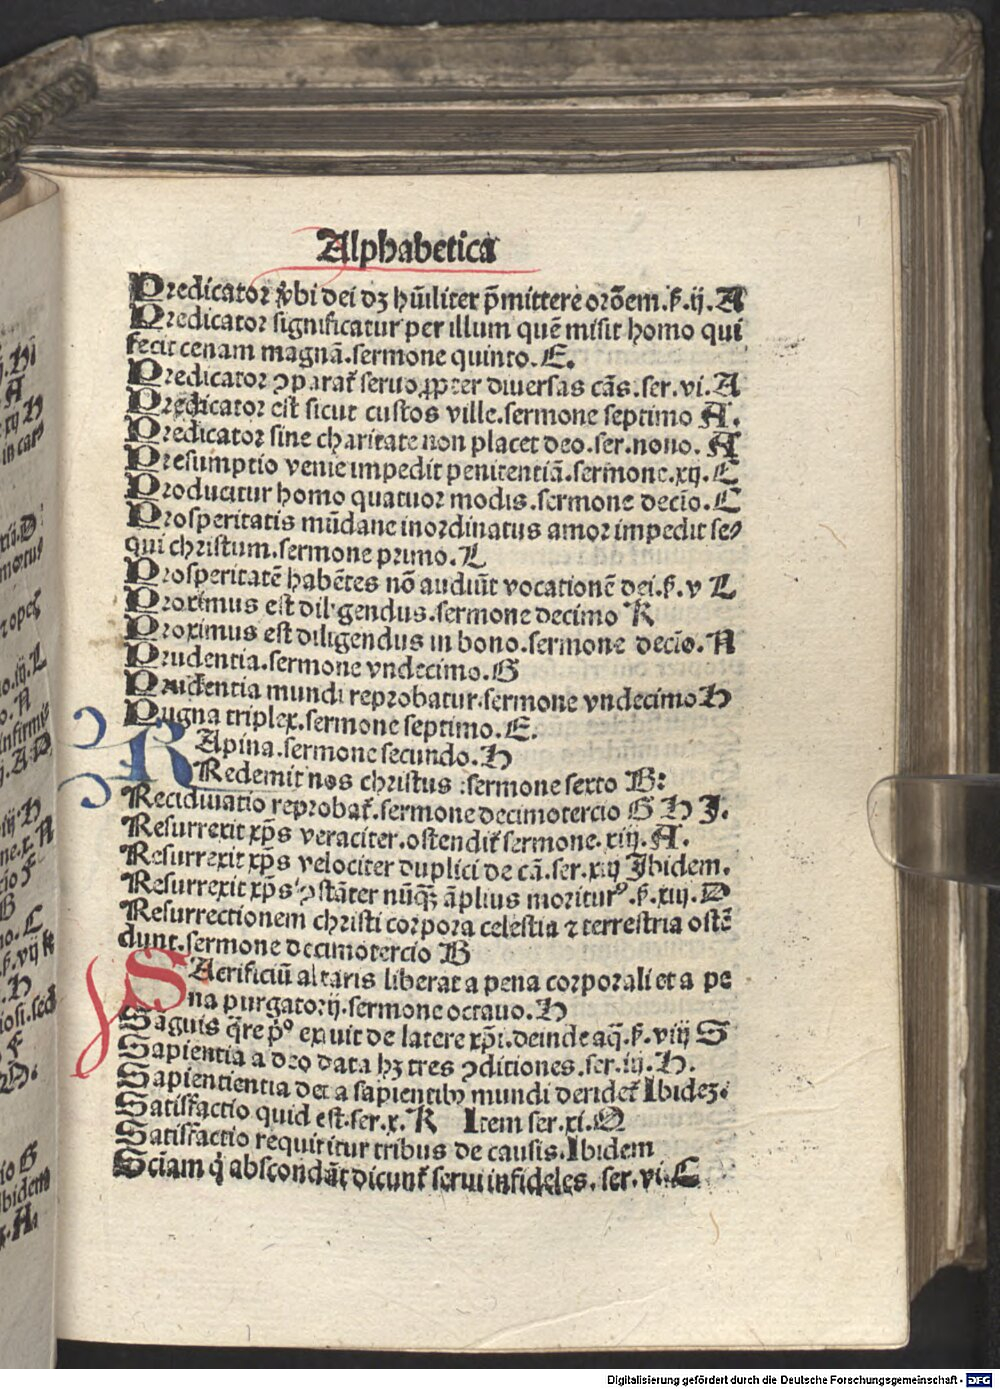 Alphabetica
Predicator v̾bi dei dꝫ hūiliter p̄mittere orōem.ẜ.ij.A
Predicator significatur per illum quē misit homo qui
fecit cenam magnā.sermone quinto.E.
Predicator ꝯparat᷑ seruo ꝓpter diuersas cās.ser.vi.A
Predicator est sicut custos ville.sermone septimo A.
Predicator sine charitate non placet deo.ser.nono.A
Presumptio venie impedit penitentiā.sermone.xij.C
Producitur homo quatuor modis.sermone decīo.C
Prosperitatis mūdane inordinatus amor impedit se⸗
qui christum.sermone primo.L
Prosperitatē habētes nō audiūt vocationē dei.ẜ.v L
Proximus est diligendus.sermone decimo K
Proximus est diligendus in bono.sermone decīo.N
Prudentia.sermone vndecimo.G
Prudentia mundi reprobatur.sermone vndecimo H
Pugna triplex.sermone septimo.E.
RApina.sermone secundo.H
Redemit nos christus :sermone sexto B:
Recidiuatio reprobat᷑.sermone decimotercio G H J.
Resurrexit xp̄s veraciter.ostendit᷑ sermone.xiij.A.
Resurrexit xp̄s velociter duplici de cā.ser.xiij Ibidem.
Resurrexit xp̄s ꝯstāter nūqꝫ āplius moriturꝰ.ẜ.xiij.D
Resurrectionem christi corpora celestia ⁊ terrestria ostē
dunt.sermone decimotercio B
SAcrificiū altaris liberat a pena corporali et a pe
na purgatorij.sermone octauo.H
Saguis q̄re pͦ exiuit de latere xp̄i.deinde aq̄.ẜ.viij S
Sapientia a deo data hꝫ tres ꝯditiones.ser.iij.H.
Sapientientia dei a sapientibꝰ mundi deridet᷑ Ibideꝫ.
Satisfactio quid est.ser.x.K Item ser.xi.Q
Satisfactio requiritur tribus de causis.Ibidem
Scīam q̄ abscondāt dicunt᷑ serui infideles.ser.vi.C
Digitalisierung gefördert durch die Deutsche Forschungsgemeinschaft - DFG